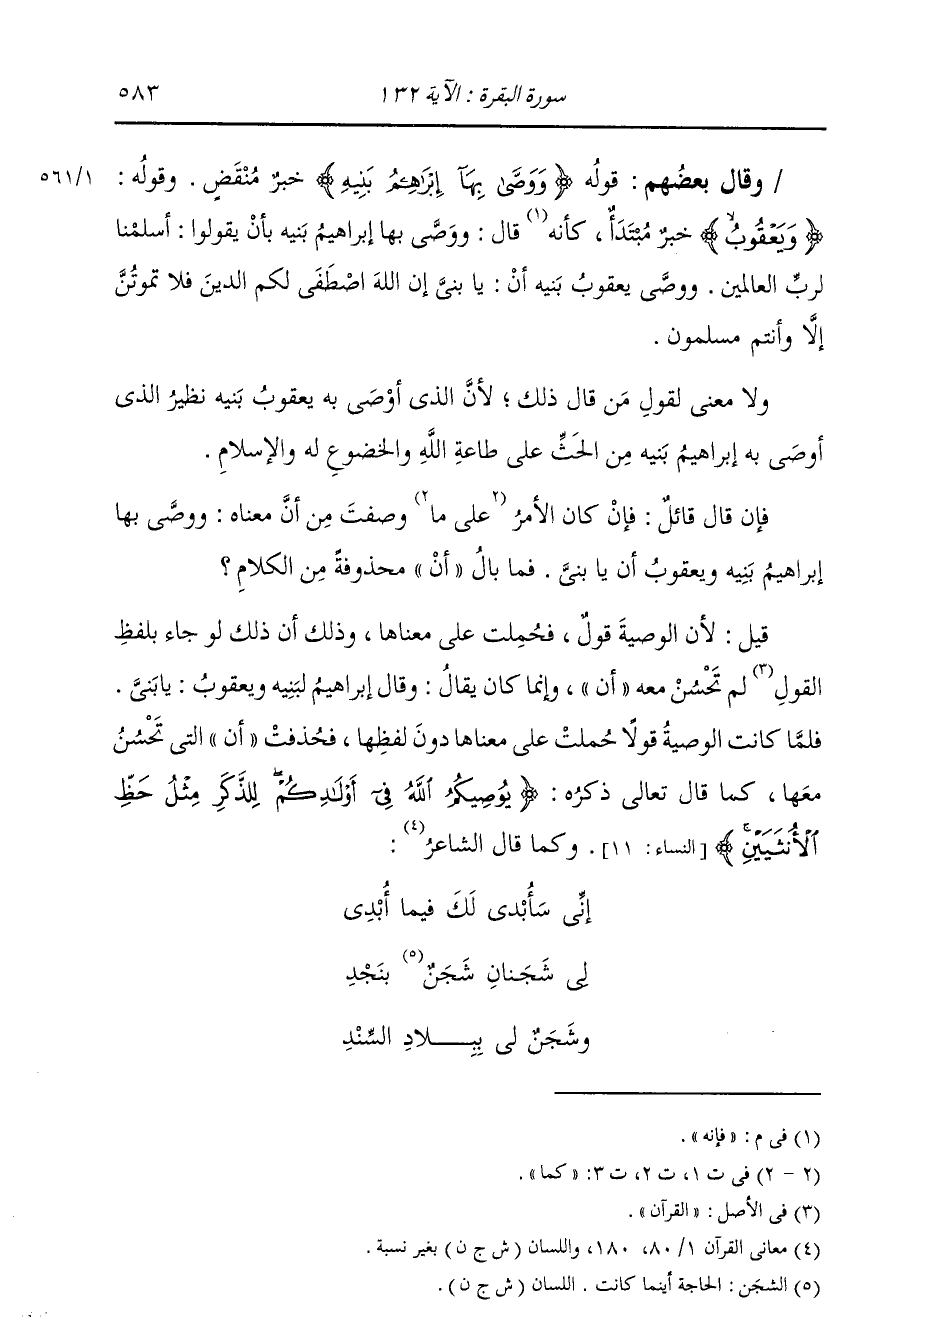 سورة البقرة : الآية ١٣٢ ٥٨٣
/ وقال بعضُهم : قولُه ﴿ وَوَصَّىٰ بِهَآ إِبْرَٰهِـۧمُ بَنِيهِ ﴾ خبرٌ مُنْقَضٍ . وقولُه : ٥٦١/١
﴿ وَيَعْقُوبُ ﴾ خبرٌ مُبْتَدَأٌ ، كأنه(١) قال : ووَصَّى بها إبراهيمُ بَنيه بأنْ يقولوا : أسلمْنا
لربِّ العالمين . ووصَّى يعقوبُ بَنيه أنْ : يا بنىَّ إن اللهَ اصْطَفَى لكم الدينَ فلا تموتُنَّ
إلَّا وأنتم مسلمون .
ولا معنى لقولِ مَن قال ذلك ؛ لأنَّ الذى أوْصَى به يعقوبُ بَنيه نظيرُ الذى
أوصَى به إبراهيمُ بَنيه مِن الحَثِّ على طاعةِ اللَّهِ والخضوعِ له والإسلامِ .
فإن قال قائلٌ : فإنْ كان الأمرُ (٢على ما٢) وصفتَ مِن أنَّ معناه : ووصَّى بها
إبراهيمُ بَنِيه ويعقوبُ أن يا بنىَّ . فما بالُ « أنْ » محذوفةً مِن الكلامِ ؟
قيل : لأن الوصيةَ قولٌ ، فحُمِلت على معناها ، وذلك أن ذلك لو جاء بلفظِ
القولِ(٣) لم تَحْسُنْ معه « أن » ، وإنما كان يقالُ : وقال إبراهيمُ لبَنِيه ويعقوبُ : يابَنىَّ .
فلمَّا كانت الوصيةُ قولًا حُملتْ على معناها دونَ لفظِها ، فحُذفتْ « أن » التى تَحْسُنُ
معَها ، كما قال تعالى ذكرُه : ﴿ يُوصِيكُمُ ٱللَّهُ فِىٓ أَوْلَٰدِكُمْ ۖ لِلذَّكَرِ مِثْلُ حَظِّ
ٱلْأُنثَيَيْنِ ۚ ﴾ [ النساء : ١١] . وكما قال الشاعرُ(٤) :
إنِّى سَأُبْدى لَكَ فيما أُبْدِى
لِى شَجَنانِ شَجَنٌ(٥) بنَجْدِ
وشَجَنٌ لى بِبِـــــلادِ السِّنْدِ
(١) فى م : « فإنه » .
(٢ - ٢) فى ت ١، ت ٢، ت ٣: « كما » .
(٣) فى الأصل : « القرآن » .
(٤) معانى القرآن ١/ ٨٠، ١٨٠، واللسان ( ش ج ن ) بغير نسبة .
(٥) الشجَن : الحاجة أينما كانت . اللسان ( ش ج ن ) .